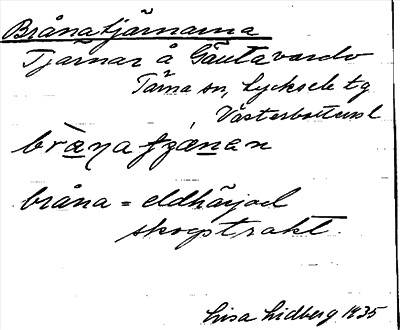 Bråna tjärnarna
Tjärnar å Gäutavardo
Tärna sn, Lycksele tg
Västerbottens l
bråna = eldhärjad
skogstrakt.
Lisa Lidberg 1935